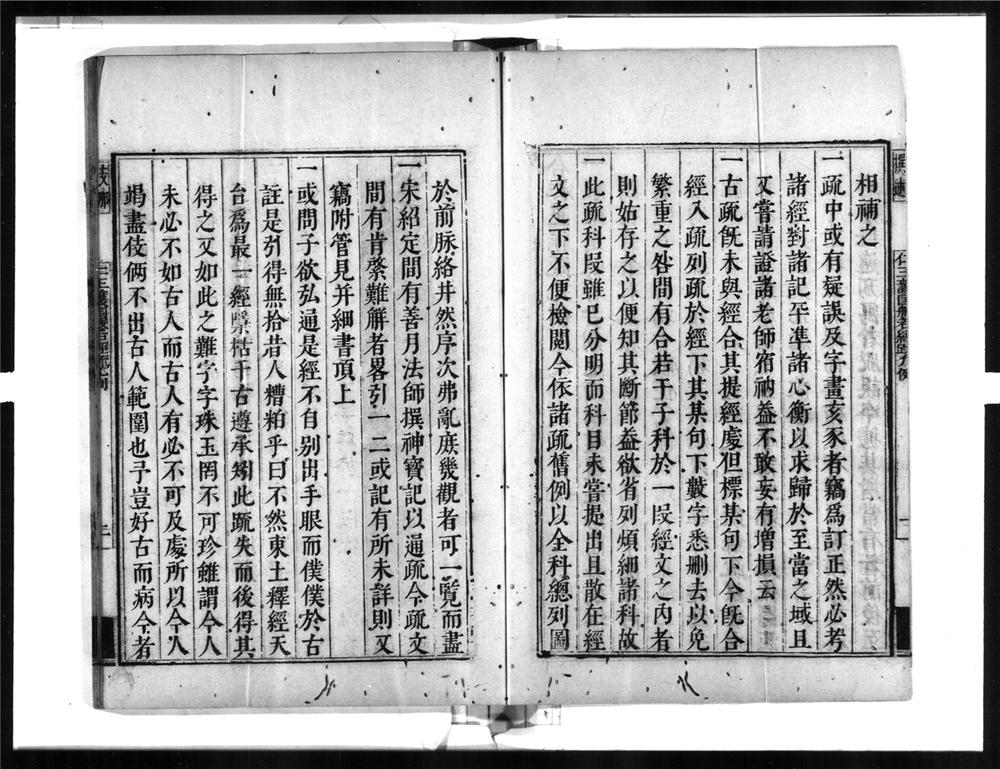 相補之
一疏中或有疑誤及字畫亥豕者竊爲訂正然必考
諸經對諸記平準諸心衡以求歸於至當之域且
又嘗請證諸老師宿衲葢不敢妄有增損云
一古疏旣未與經合其提經處但標某句下今旣合
經入疏列疏於經下其某句下數字悉刪去以免
繁重之咎間有合若干子科於一段經文之內者
則姑存之以便知其斷節葢欲省列煩細諸科故
一此疏科段雖已分明而科目未嘗提出且散在經
文之下不便檢閱今依諸疏舊例以全科總列圖
於前脉絡井然序次弗亂庶幾觀者可一覽而盡
一宋紹定間有善月法師撰神寶記以通疏今疏文
間有肯綮難解者畧引一二或記有所未詳則又
竊附管見并細書頂上
一或問子欲弘通是經不自别出手眼而僕僕於古
註是引得無拾昔人糟粕乎曰不然東土釋經天
台爲最一經槩栝千古遵承矧此疏失而後得其
得之又如此之難字字珠玉罔不可珍雖謂今人
未必不如古人而古人有必不可及處所以今人
竭盡伎倆不出古人範圍也予豈好古而病今者